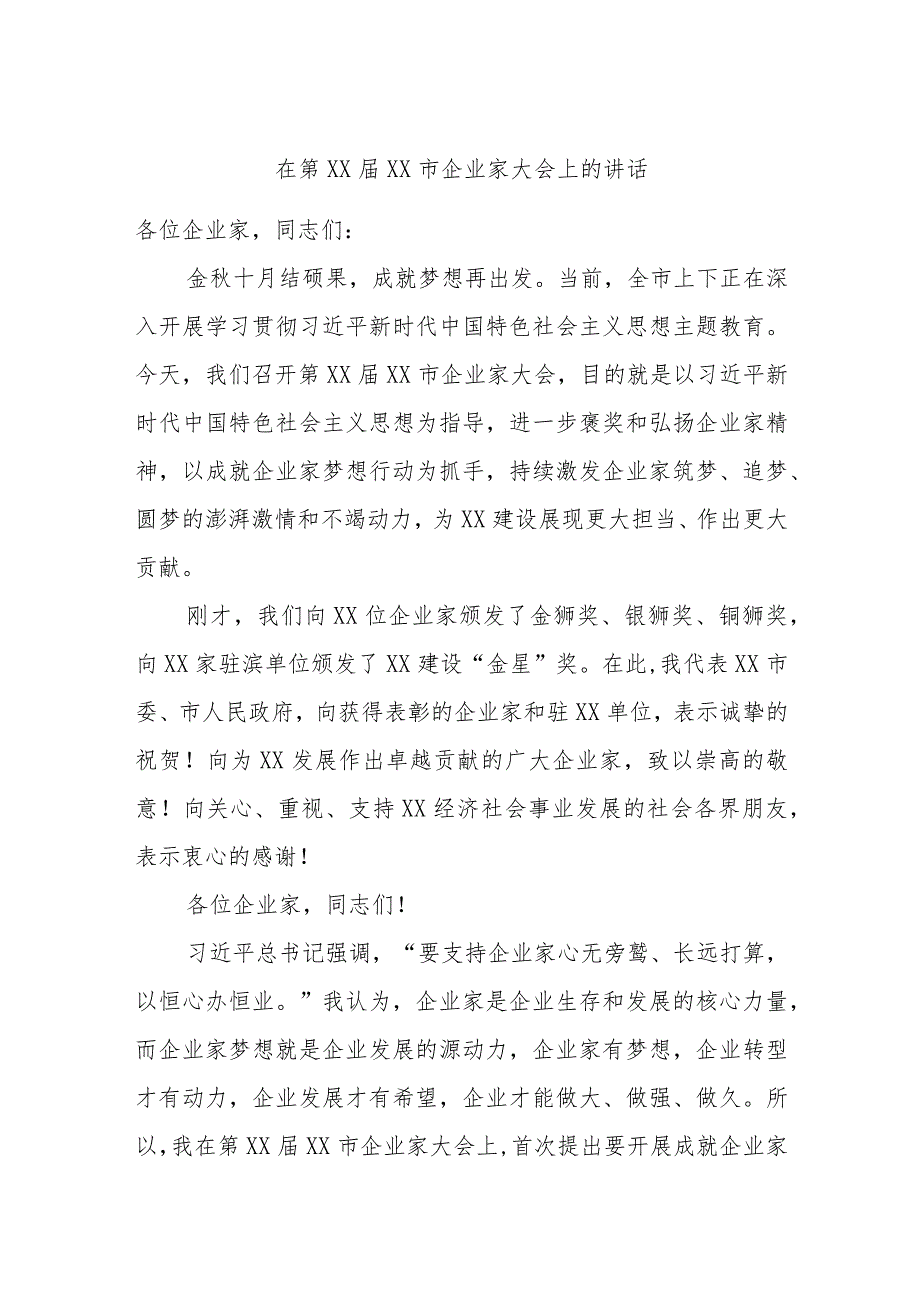 在第 XX 届 XX 市企业家大会上的讲话
各位企业家，同志们：
金秋十月结硕果，成就梦想再出发。当前，全市上下正在深
入开展学习贯彻习近平新时代中国特色社会主义思想主题教育。
今天，我们召开第 XX 届 XX 市企业家大会，目的就是以习近平新
时代中国特色社会主义思想为指导，进一步褒奖和弘扬企业家精
神，以成就企业家梦想行动为抓手，持续激发企业家筑梦、追梦、
圆梦的澎湃激情和不竭动力，为 XX 建设展现更大担当、作出更大
贡献。
刚才，我们向 XX 位企业家颁发了金狮奖、银狮奖、铜狮奖，
向 XX 家驻滨单位颁发了 XX 建设“金星”奖。在此,我代表 XX 市
委、市人民政府，向获得表彰的企业家和驻 XX 单位，表示诚挚的
祝贺！向为 XX 发展作出卓越贡献的广大企业家，致以崇高的敬
意！向关心、重视、支持 XX 经济社会事业发展的社会各界朋友，
表示衷心的感谢！
各位企业家，同志们！
习近平总书记强调，“要支持企业家心无旁鹜、长远打算，
以恒心办恒业。”我认为，企业家是企业生存和发展的核心力量，
而企业家梦想就是企业发展的源动力，企业家有梦想，企业转型
才有动力，企业发展才有希望，企业才能做大、做强、做久。所
以,我在第 XX 届 XX 市企业家大会上,首次提出要开展成就企业家